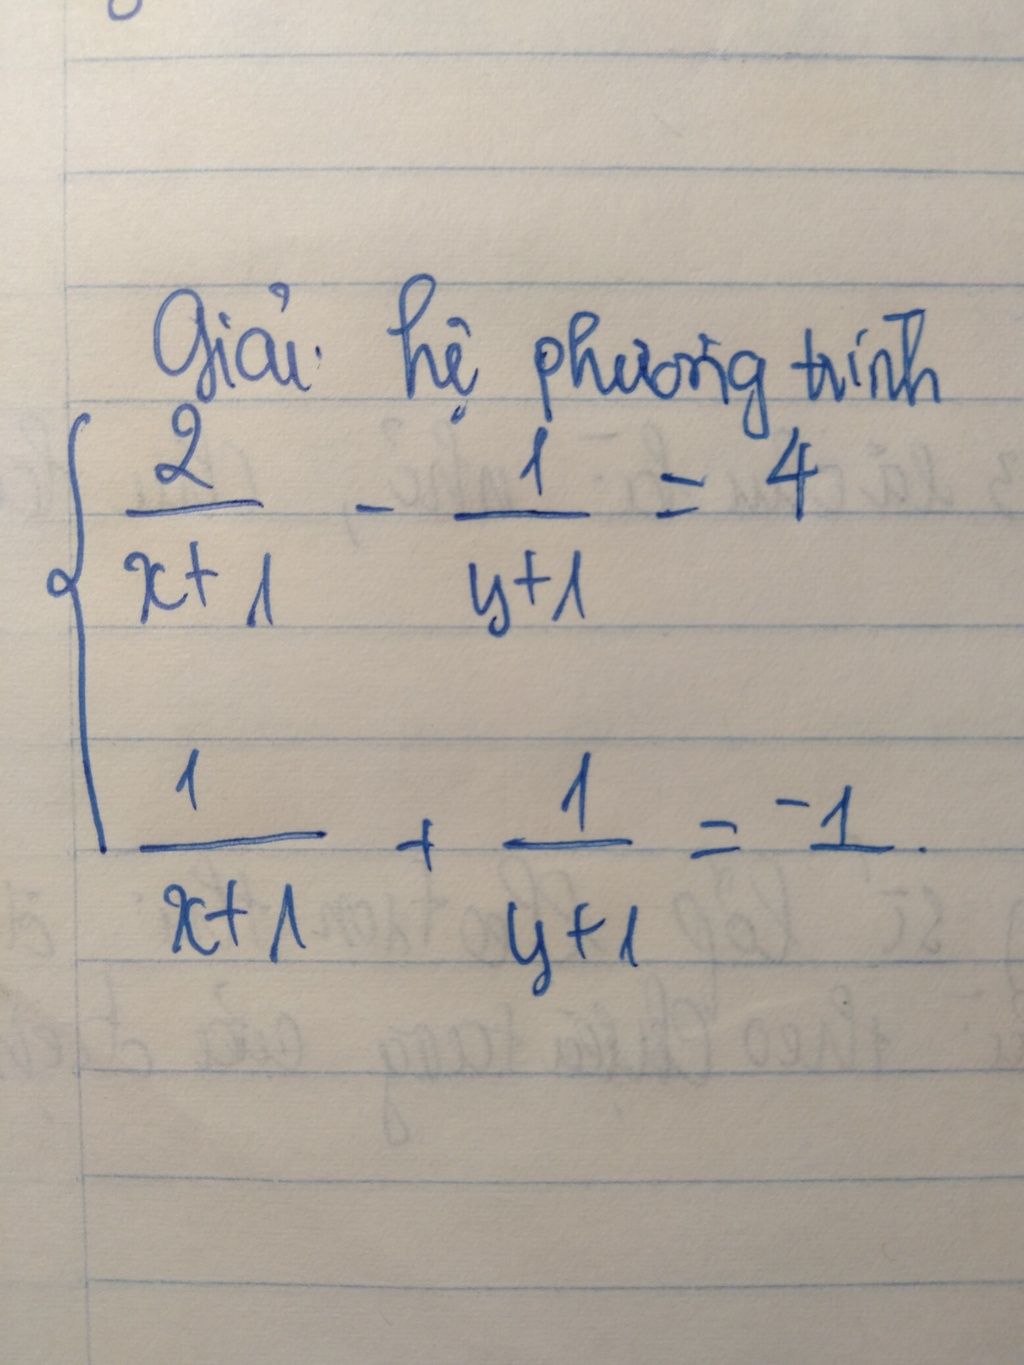 Giải hệ phương trình
2/(x+1) - 1/(y+1) = 4
1/(x+1) + 1/(y+1) = -1.